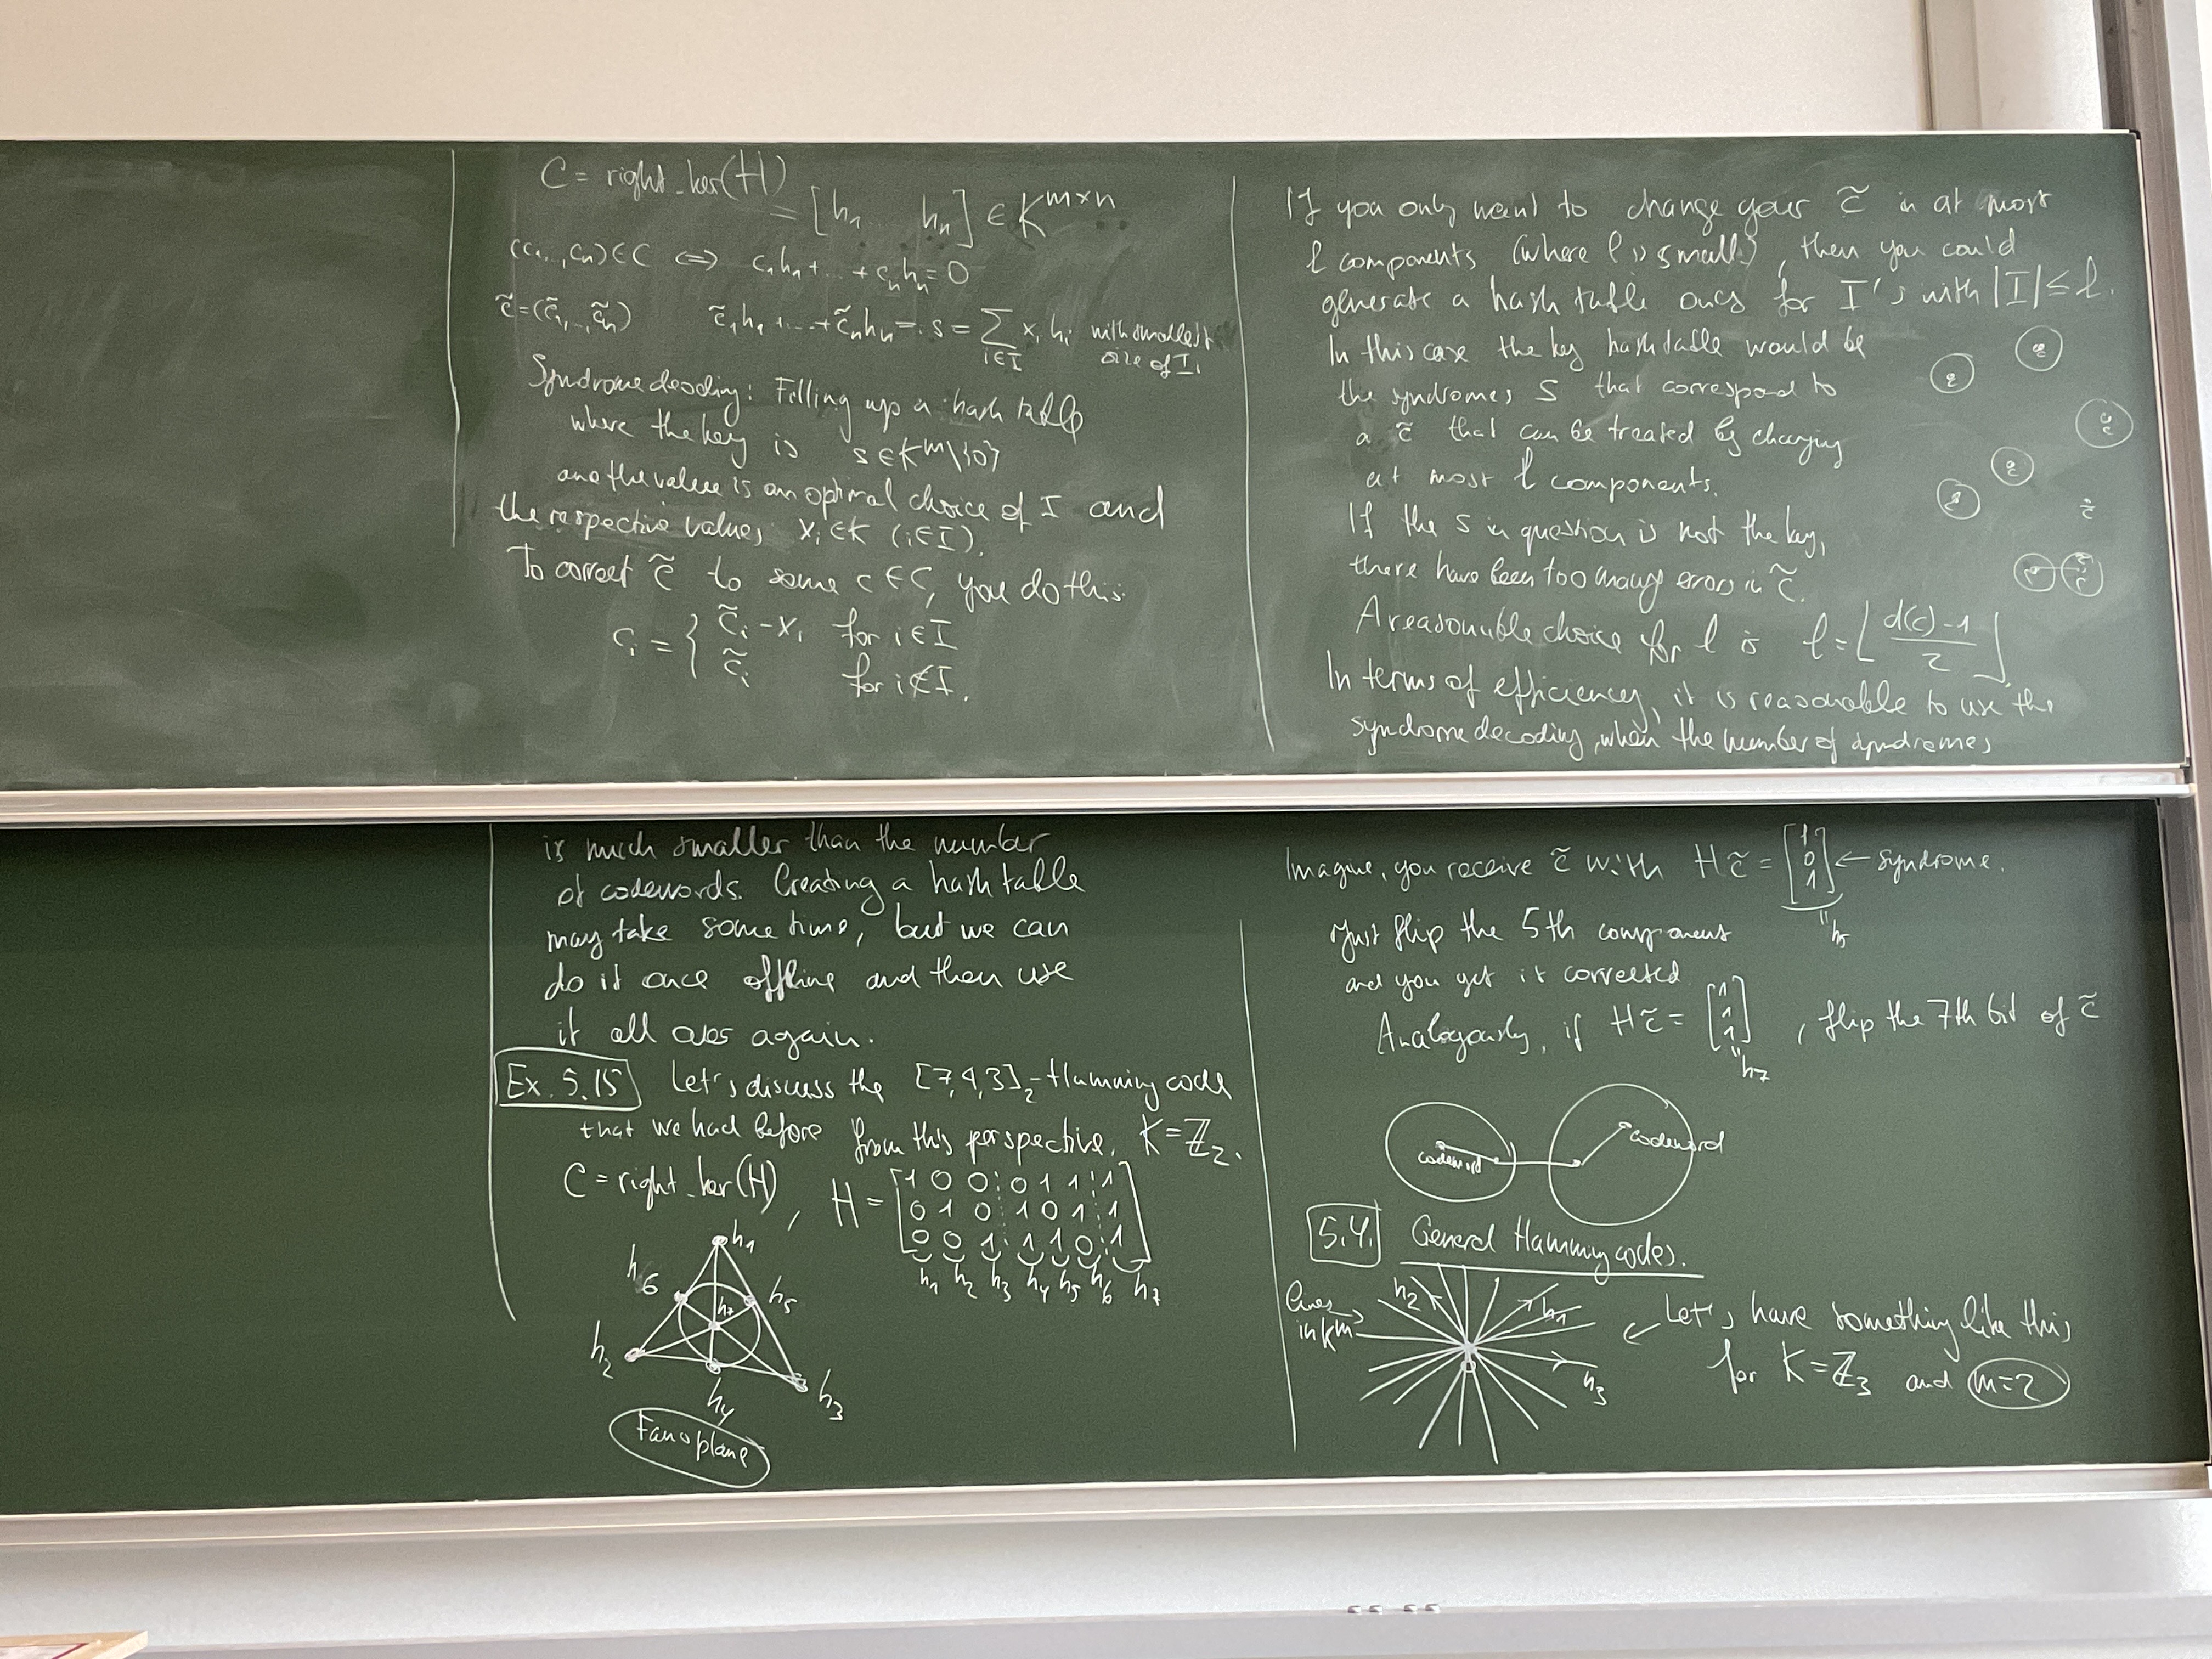 C = right_ker(H)
= [h₁ ... hₙ] ∈ K^{m×n}
(c₁,...,cₙ) ∈ C ⇔ c₁h₁+...+cₙhₙ = 0
c̃=(c̃₁,...,c̃ₙ) c̃₁h₁+...+c̃ₙhₙ =: s = ∑_{i∈I} xᵢ hᵢ with smallest
size of I.
Syndrome decoding: Filling up a hash table
where the key is s ∈ K^m\{0}
and the value is an optimal choice of I and
the respective values xᵢ ∈ K (i∈I).
To correct c̃ to some c ∈ C, you do this:
cᵢ = { c̃ᵢ - xᵢ for i ∈ I
c̃ᵢ for i ∉ I.
If you only want to change your c̃ in at most
ℓ components (where ℓ is small), then you could
generate a hash table once for I's with |I| ≤ ℓ.
In this case the key hash table would be
the syndromes s that correspond to
a c̃ that can be treated by changing
at most ℓ components.
If the s in question is not the key,
there have been too many errors in c̃.
A reasonable choice for ℓ is ℓ = ⌊(d(C)-1)/2⌋
In terms of efficiency, it is reasonable to use the
syndrome decoding, when the number of syndromes
c̃
is much smaller than the number
of codewords. Creating a hash table
may take some time, but we can
do it once offline and then use
it all over again.
Ex. 5.15 Let's discuss the [7,4,3]₂-Hamming code
that we had before from this perspective. K=ℤ₂.
C = right_ker(H), H = [1 0 0 0 1 1 1
0 1 0 1 0 1 1
0 0 1 1 1 0 1]
h₁ h₂ h₃ h₄ h₅ h₆ h₇
h₁
h₆ h₅
h₇
h₂
h₄ h₃
Fano plane
Imagine, you receive c̃ with Hc̃ = [1 0 1] ← syndrome.
" h₅
Just flip the 5th component
and you get it corrected
Analogously, if Hc̃ = [1 1 1], flip the 7th bit of c̃
" h₇
codeword codeword
5.4. General Hamming codes.
lines → in K^m
h₂ h₁
h₃
← Let's have something like this
for K=ℤ₃ and m=2